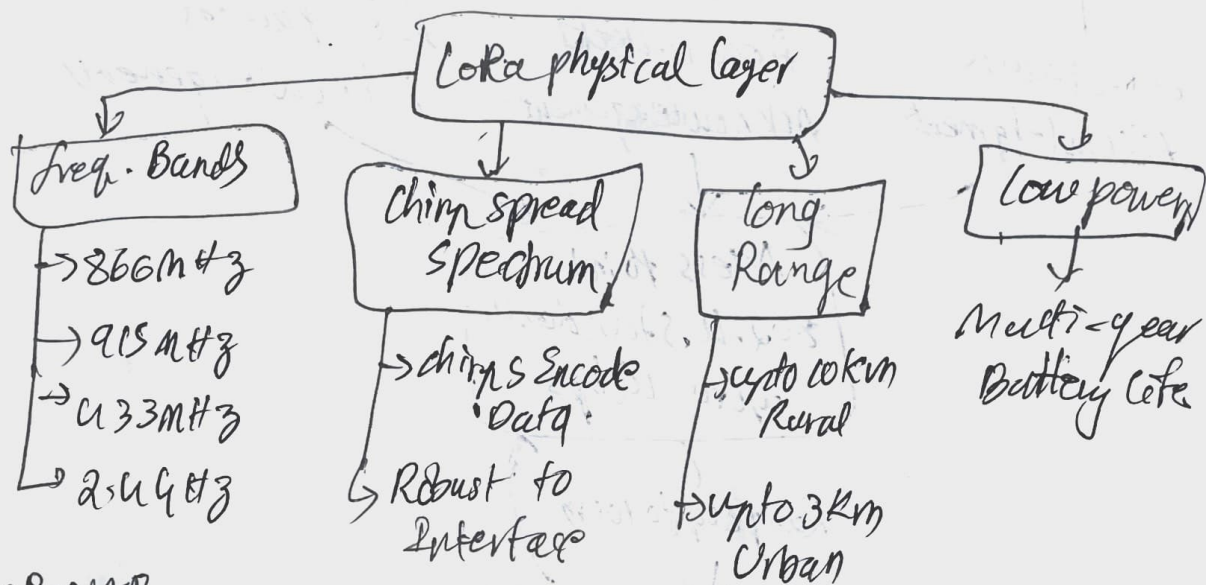 LoRa physical layer
freq. Bands
→ 866 MHz
→ 915 MHz
→ 433 MHz
→ 2.4 GHz
Chirp spread
spectrum
→ chirps Encode
Data
→ Robust to
Interface
long
Range
→ upto 10km
Rural
→ upto 3km
Urban
low power
Multi-year
Battery life